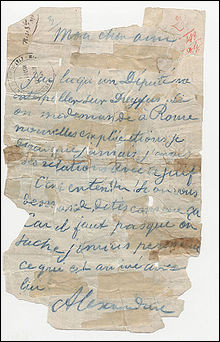 Mon cher ami
J'ai lu qu'un Deputé va
interpeller sur Dreyfus. Si
on me demande à Rome
nouvelles explications je
dirai que jamais j'avais
des relations avec ce Juif
C'est entendu. Si on vous
demande dites comme ça
Car il faut pas que on
sache jamais personne
ce qui est arrivé avec
lui
Alexandrine